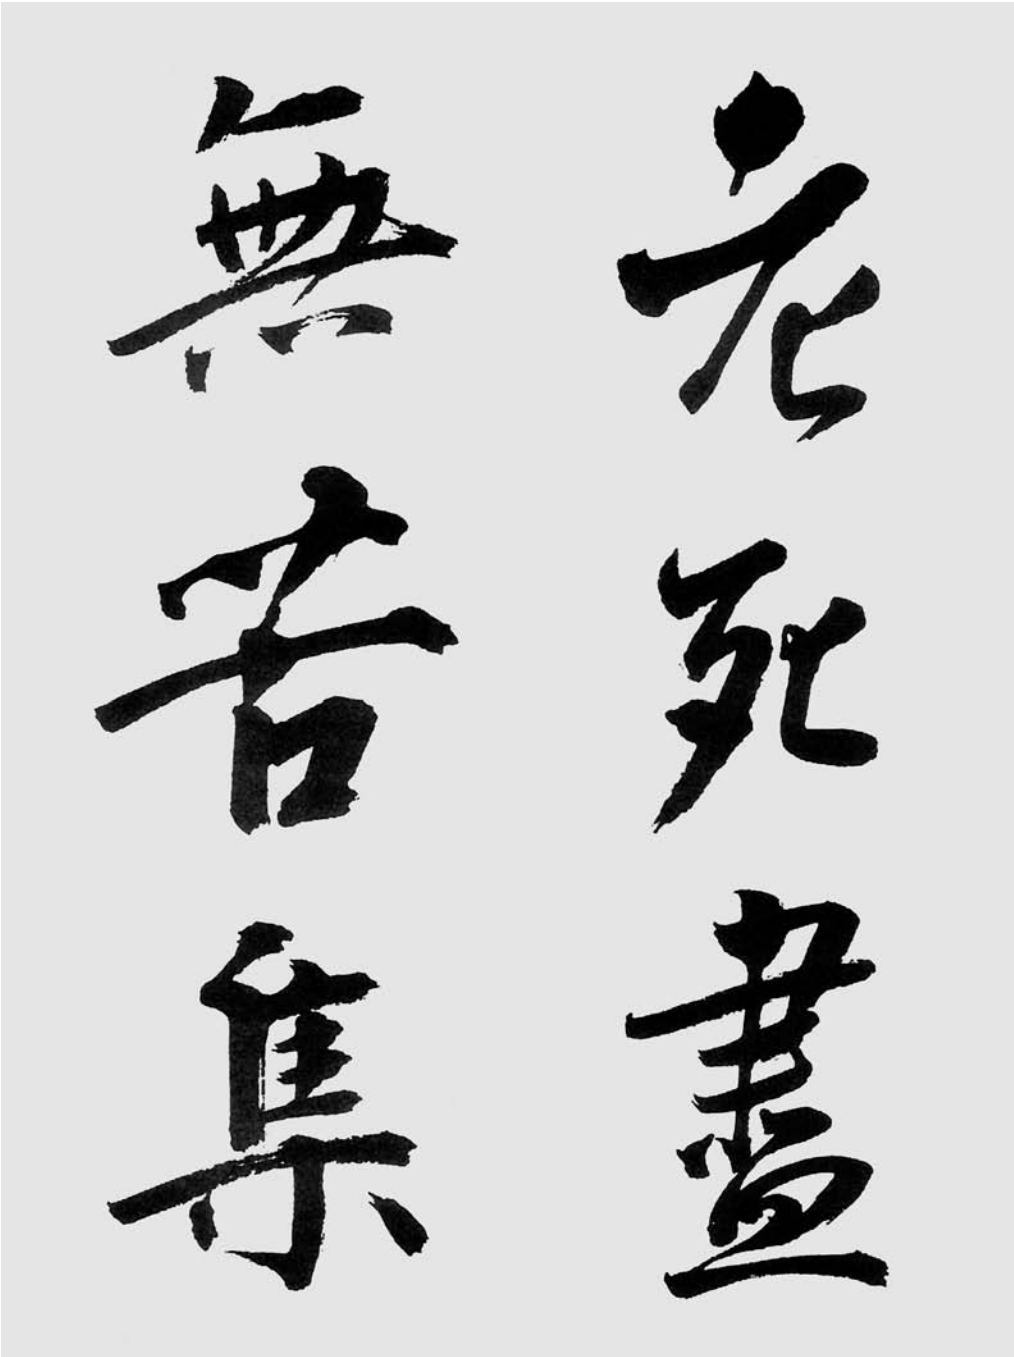 老死盡
無苦集